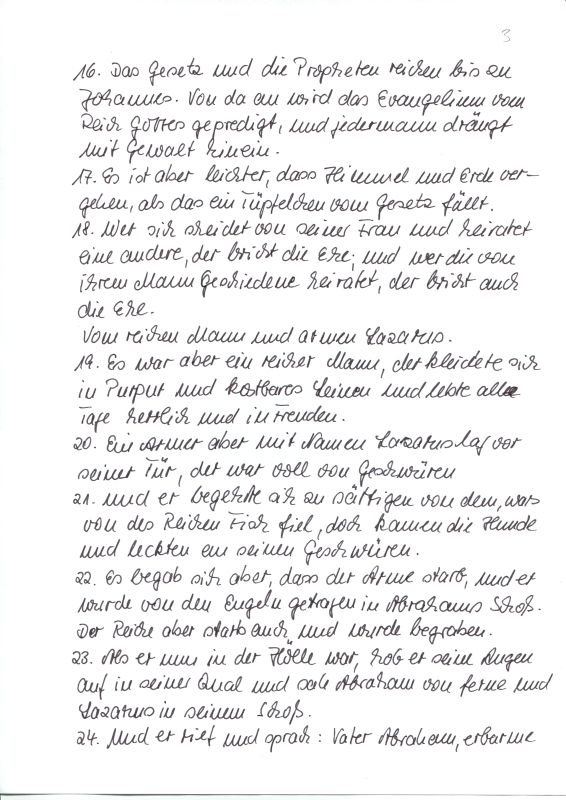 3
16. Das Gesetz und die Propheten reichen bis zu
Johannes. Von da an wird das Evangelium vom
Reich Gottes gepredigt, und jedermann drängt
mit Gewalt hinein.
17. Es ist aber leichter, dass Himmel und Erde ver-
gehen, als das ein Tüpfelchen vom Gesetz fällt.
18. Wer sich scheidet von seiner Frau und heiratet
eine andere, der bricht die Ehe; und wer die von
ihrem Mann Geschiedene heiratet, der bricht auch
die Ehe.
Vom reichen Mann und armen Lazarus.
19. Es war aber ein reicher Mann, der kleidete sich
in Purpur und kostbares Leinen und lebte alle
Tage herrlich und in Freuden.
20. Ein Armer aber mit Namen Lazarus lag vor
seiner Tür, der war voll von Geschwüren
21. und er begehrte sich zu sättigen von dem, was
von des Reichen Tisch fiel, doch kamen die Hunde
und leckten an seinen Geschwüren.
22. Es begab sich aber, dass der Arme starb, und er
wurde von den Engeln getragen in Abrahams Schoß.
Der Reiche aber starb auch und wurde begraben.
23. Als er nun in der Hölle war, hob er seine Augen
auf in seiner Qual und sah Abraham von ferne und
Lazarus in seinem Schoß.
24. Und er rief und sprach: Vater Abraham, erbarme